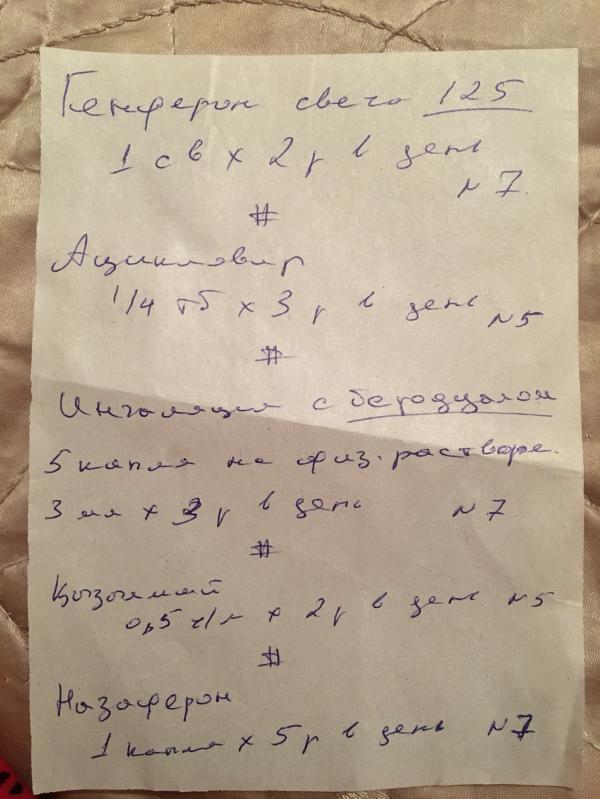 Генферон свечо 125
1 св х 2 р в день
N 7.
#
Ацикловир
1/4 тб х 3 р в день N5
#
Ингаляция с беродуалом
5 капля на физ. растворе.
3 мл х 3 р в день N 7
#
Қызылмай
0,5 ч/л х 2 р в день N5
#
Назоферон
1 капля х 5 р в день N7